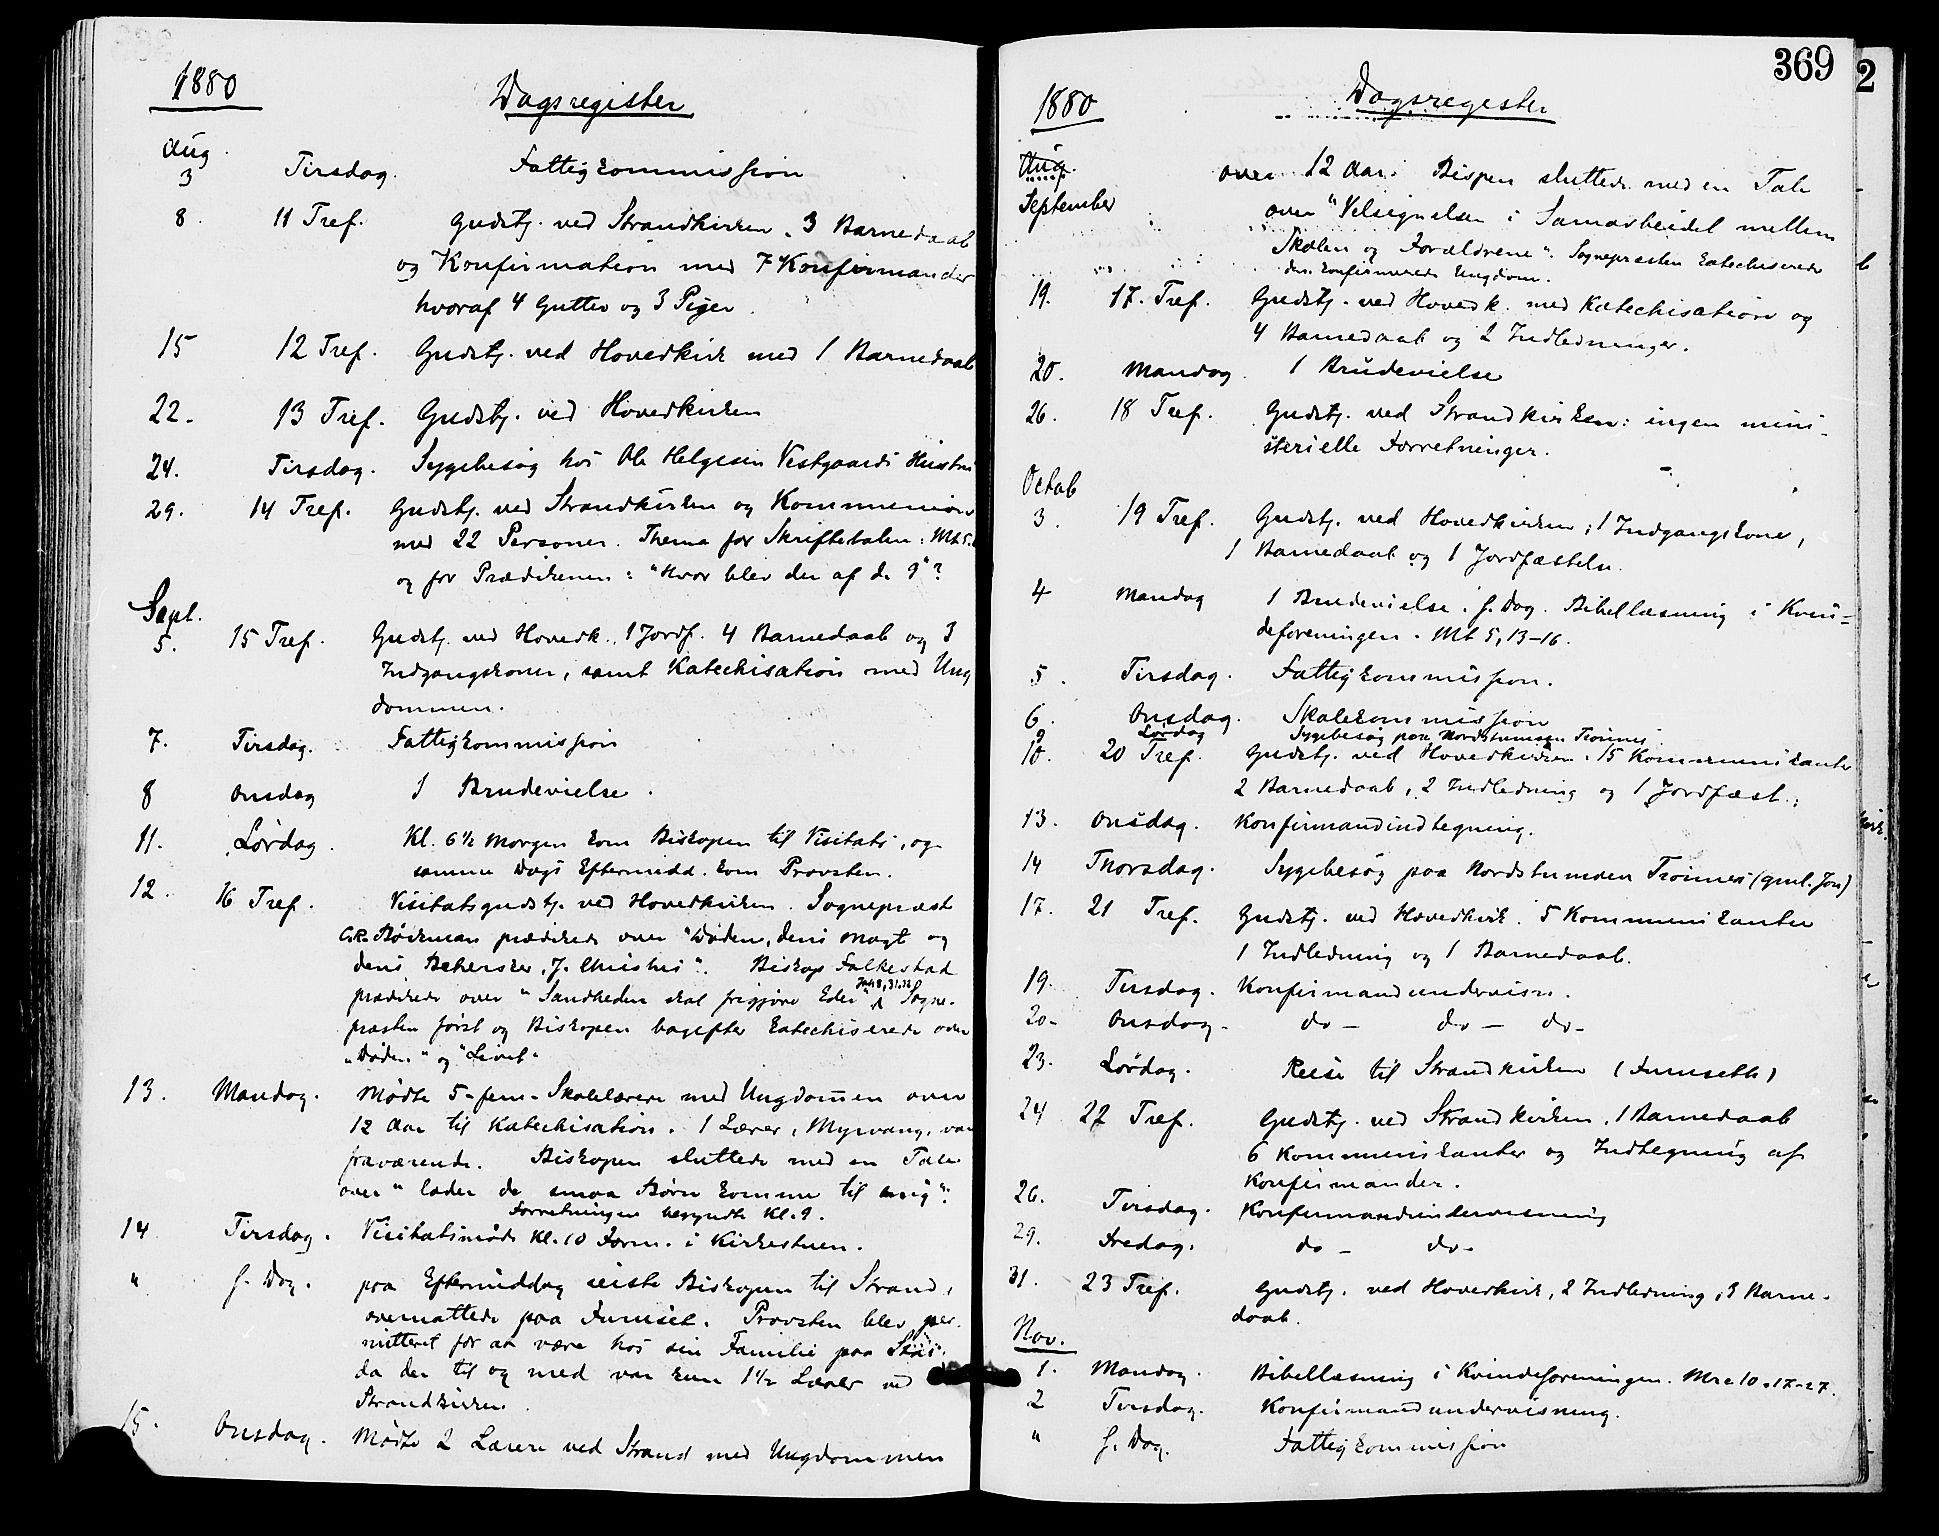 1880
Dagsregister
Aug.
3 Tirsdag. Fattigkommission
8. 11 Tref. Gudstj. ved Strandkirken. 3 Barnedaab
og Konfirmation med 7 Konfirmander
hvoraf 4 Gutter og 3 Piger.
15 12 Tref. Gudstj. ved Hovedkirk med 1 Barnedaab
22. 13 Tref. Gudstj. ved Hovedkirken
24. Tirsdag. Sygebesøg hos Ole Helgesen Vestgaards Hustru
29. 14 Tref. Gudstj. ved Strandkirken og Kommunion
med 22 Personer. Thema for Skriftetalen: Mt 5.
og for Prædikenen: "Hvor blev der af de 9"?
Sept.
5. 15 Tref. Gudstj. ved Hovedk. 1 Jordf. 4 Barnedaab og 3
Indgangskoner, samt Katechisation med Ung
dommen.
7. Tirsdag. Fattigkommission
8 Onsdag 1 Brudevielse.
11. Lørdag. Kl. 6½ Morgen kom Biskopen til Visitats, og
samme Dags Eftermidd. kom Provsten.
12. 16 Tref. Visitatsgudstj. ved Hovedkirken. Sognepræst
C.R. Bøckman prædikede over "Døden, dens Magt og
dens Behersker, J. Christus". Biskop Folkestad
prædikede over "Sandheden skal frigjøre Eder" Joh 8,31.32 Sogne-
præsten først og Biskopen bagefter katechiserede over
"Døden" og "Livet"
13. Mandag. Mødte 5-fem-Skolelærere med Ungdommen over
12 Aar til Katechisation. 1 Lærer, Myrvang, var
fraværende. Biskopen sluttede med en Tale
over "lader de smaa Børn komme til mig".
Forretningen begyndte Kl. 9.
14 Tirsdag. Visitatsmøde Kl. 10 Form. i Kirkestuen.
" s. Dag. paa Eftermiddag reiste Biskopen til Strand,
overnattede paa Furuset. Provsten blev per-
mitteret for at være hos sin Familie paa Støi.
da der til og med var kun 1½ Lærer ved
Strandkirken.
15. Onsdag. Mødte 2 Lærere ved Strand med Ungdommen
369
2
1880
Dagsregister
Aug.
September
over 12 Aar. Bispen sluttede med en Tale
over "Velsignelsen i Samarbeidet mellem
Skolen og Forældrene". Sognepræsten katechiserede
den konfirmerede Ungdom.
19. 17. Tref. Gudstj. ved Hovedk. med Katechisation og
4 Barnedaab og 2 Indledninger.
20. Mandag. 1 Brudevielse
26. 18 Tref. Gudstj. ved Strandkirken: ingen mini-
sterielle Forretninger.
Octob
3. 19 Tref. Gudstj. ved Hovedkirken; 1 Indgangskone,
1 Barnedaab og 1 Jordfæstelse.
4 Mandag 1 Brudevielse. s. Dag. Bibellæsning i Kvin-
deforeningen. Mt 5, 13-16.
5. Tirsdag. Fattigkommission.
6. Onsdag. Skolekommission
9 Lørdag Sygebesøg paa Nordstumoen Trønnes
10. 20 Tref. Gudstj. ved Hovedkirken. 15 Kommunikanter
2 Barnedaab, 2 Indledning og 1 Jordfæst.;
13. Onsdag. Konfirmandindtegning.
14 Thorsdag. Sygebesøg paa Nordstumoen Trønnes (gml. Jon)
17. 21 Tref. Gudstj. ved Hovedkirk. 5 Kommunikanter
1 Indledning og 1 Barnedaab.
19. Tirsdag. Konfirmandundervisn.
20- Onsdag. do - do - do-
23. Lørdag. Reise til Strandkirken (Furuseth)
24 22 Tref. Gudstj. ved Strandkirken. 1 Barnedaab
6 Kommunikanter og Indtegning af
Konfirmander.
26. Tirsdag. Konfirmandundervisning
29. Fredag. do - do-
31. 23 Tref. Gudstj. ved Hovedkirk, 2 Indledning, 3 Barne-
daab.
Nov.
1. Mandag. Bibellæsning i Kvindeforeningen. Mrc 10.17-27.
2 Tirsdag. Konfirmandundervisning.
" s. Dag. Fattigkommission